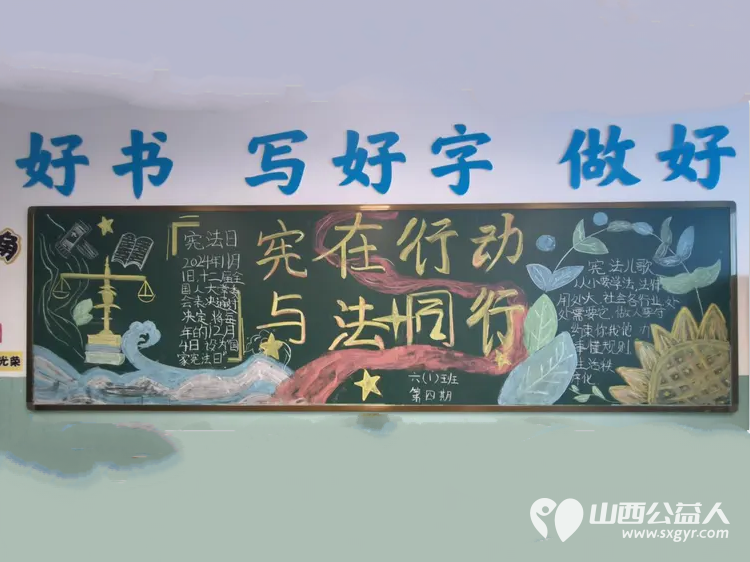 好书 写好字 做好
宪在行动
与法同行
宪法日
2024年11月
1日,十二届全
国人大常委
会表决通过
决定,将每
年的12月
4日设为国
家宪法日
六(1)班
第四期
宪法儿歌
从小要学法,法律
用处大,社会各行业,处
处需要它,做人要守
约束你我他
事懂规则
生活秩
序化
光荣
山西公益人
www.sxgyr.com